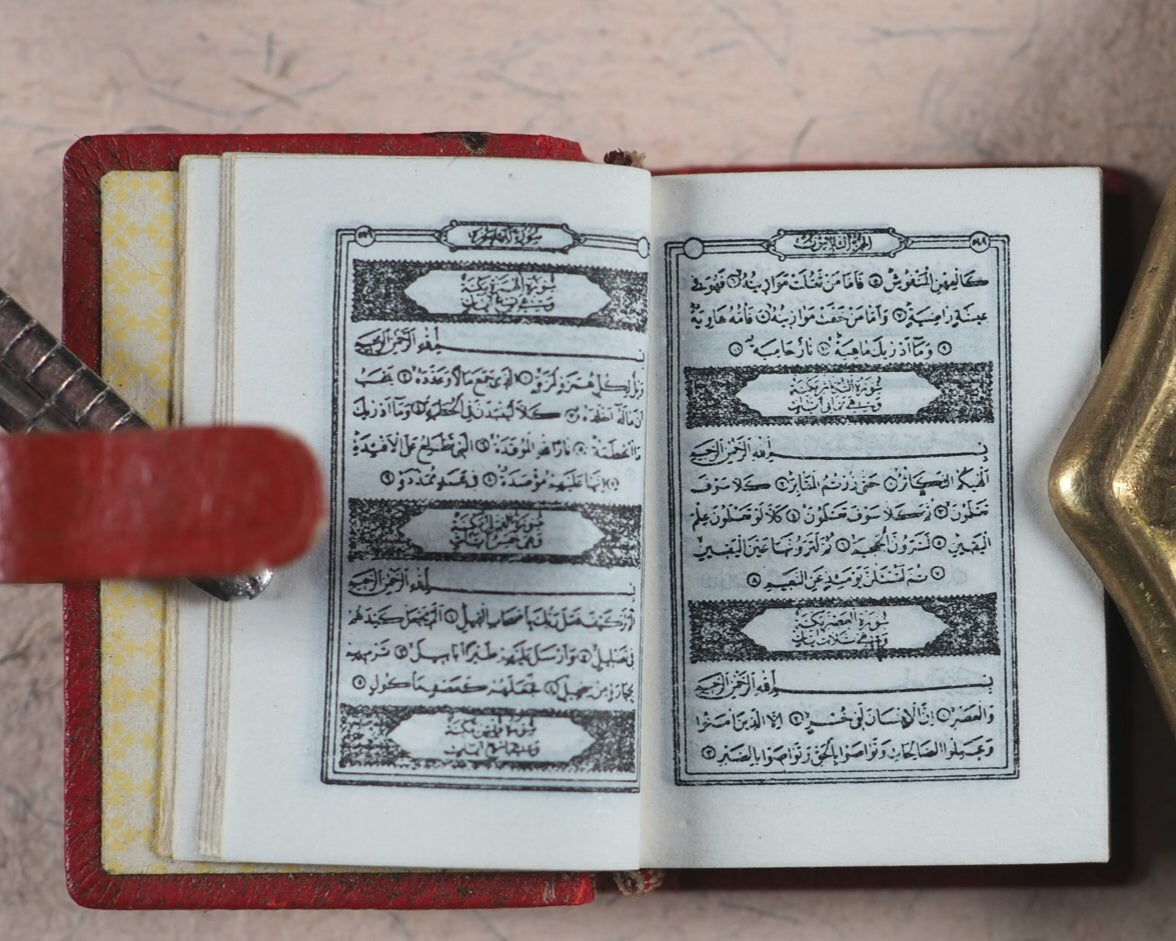 الجزء الثلاثون
كالعهن المنفوش ٥ فاما من ثقلت موازينه ٦ فهو في
عيشة راضية ٧ واما من خفت موازينه ٨ فامه هاوية
٩ وما ادريك ماهيه ١٠ نار حامية ١١
سورة التكاثر مكية
وهي ثماني ايات
بسم الله الرحمن الرحيم
الهيكم التكاثر ١ حتى زرتم المقابر ٢ كلا سوف
تعلمون ٣ ثم كلا سوف تعلمون ٤ كلا لو تعلمون علم
اليقين ٥ لترون الجحيم ٦ ثم لترونها عين اليقين
٧ ثم لتسئلن يومئذ عن النعيم ٨
سورة العصر مكية
وهي ثلاث ايات
بسم الله الرحمن الرحيم
والعصر ١ ان الانسان لفي خسر ٢ الا الذين امنوا
وعملوا الصالحات وتواصوا بالحق وتواصوا بالصبر ٣
سورة الهمزة مكية
وهي تسع ايات
بسم الله الرحمن الرحيم
ويل لكل همزة لمزة ١ الذي جمع مالا وعدده ٢ يحسب
ان ماله اخلده ٣ كلا لينبذن في الحطمة ٤ وما ادريك
ماالحطمة ٥ نار الله الموقدة ٦ التي تطلع على الافئدة
٧ انها عليهم مؤصدة ٨ في عمد ممددة ٩
سورة الفيل مكية
وهي خمس ايات
بسم الله الرحمن الرحيم
الم تر كيف فعل ربك باصحاب الفيل ١ الم يجعل كيدهم
في تضليل ٢ وارسل عليهم طيرا ابابيل ٣ ترميهم
بحجارة من سجيل ٤ فجعلهم كعصف مأكول ٥
سورة قريش مكية
وهي اربع ايات